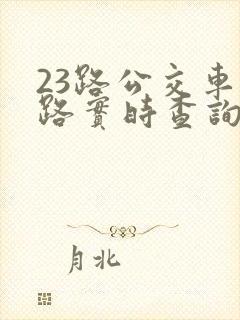 23路公交車
路實時查詢
月北